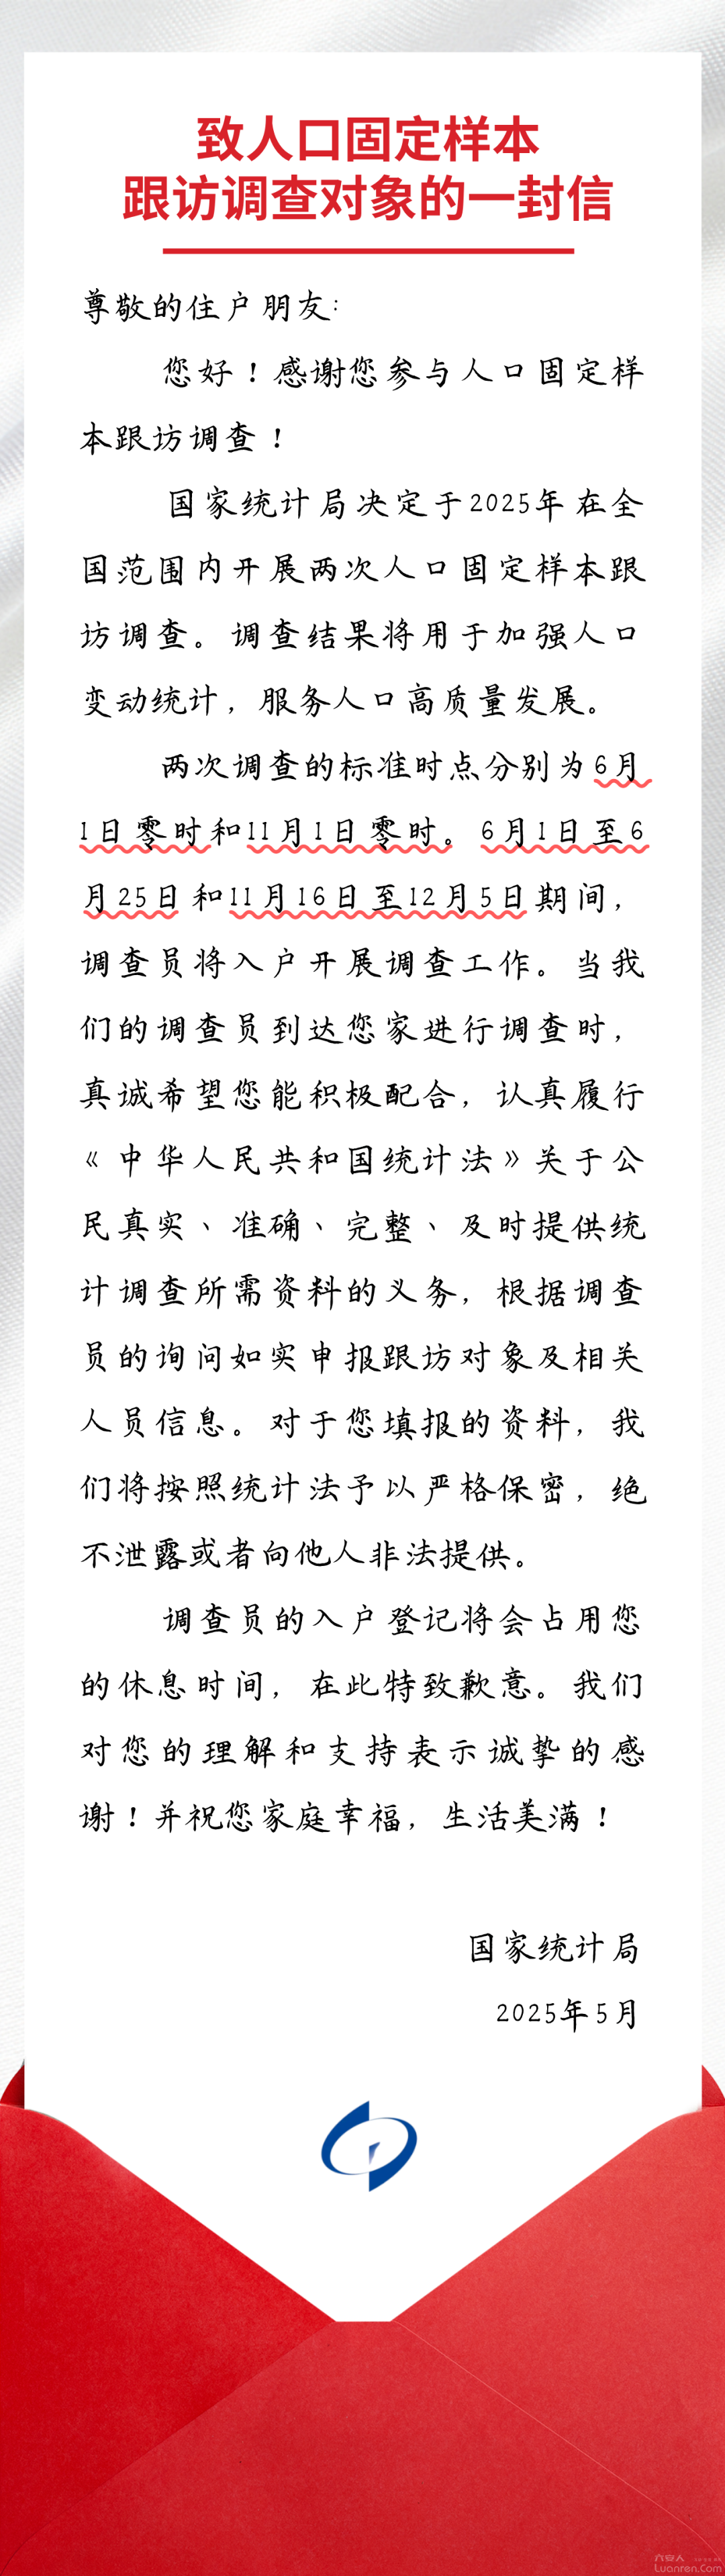 致人口固定样本
跟访调查对象的一封信
尊敬的住户朋友：
您好！感谢您参与人口固定样
本跟访调查！
国家统计局决定于2025年在全
国范围内开展两次人口固定样本跟
访调查。调查结果将用于加强人口
变动统计，服务人口高质量发展。
两次调查的标准时点分别为6月
1日零时和11月1日零时。6月1日至6
月25日和11月16日至12月5日期间，
调查员将入户开展调查工作。当我
们的调查员到达您家进行调查时，
真诚希望您能积极配合，认真履行
《中华人民共和国统计法》关于公
民真实、准确、完整、及时提供统
计调查所需资料的义务，根据调查
员的询问如实申报跟访对象及相关
人员信息。对于您填报的资料，我
们将按照统计法予以严格保密，绝
不泄露或者向他人非法提供。
调查员的入户登记将会占用您
的休息时间，在此特致歉意。我们
对您的理解和支持表示诚挚的感
谢！并祝您家庭幸福，生活美满！
国家统计局
2025年5月
六安人
Luanren.Com